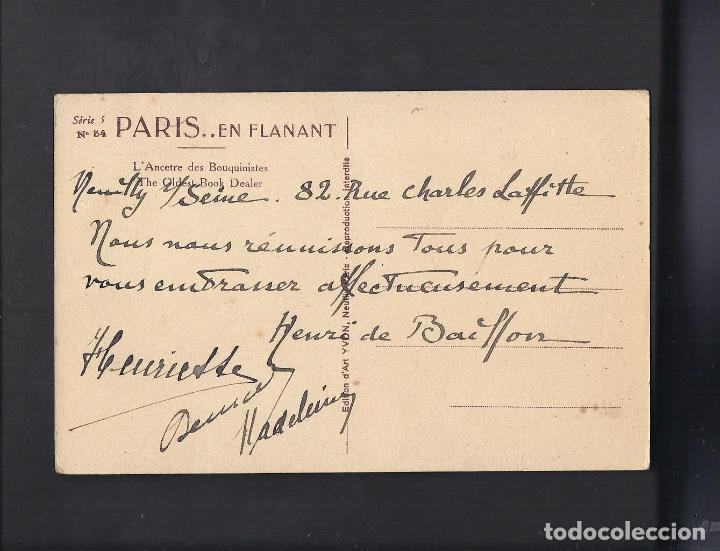 Série 5
N° 54 PARIS..EN FLANANT
L'Ancetre des Bouquinistes
The Oldest Book Dealer
Neuilly s/Seine. 82. Rue Charles Laffitte
Nous nous réunissons Tous pour
vous embrasser affectueusement
Henri de Baillon
Henriette
Madeleine
Edition d'Art YVON, Neuilly-Paris - Reproduction interdite
todocoleccion.net